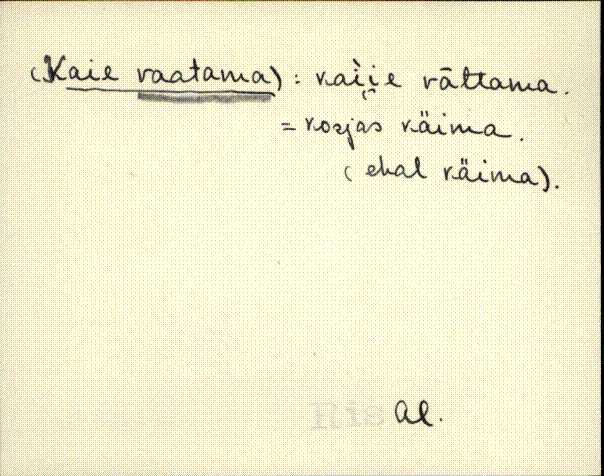 (Kaie vaatama) : kai̯i̯e vāttama.
= kosjas käima.
(ehal käima).
Ris Al.